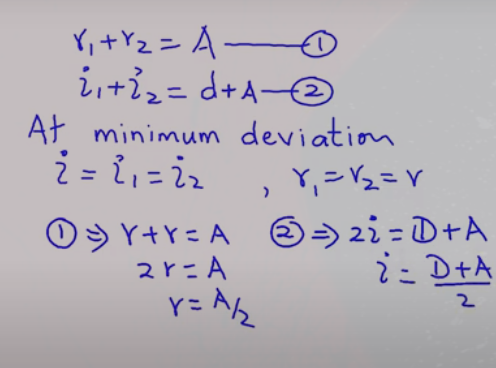 r₁+r₂ = A —— ①
i₁+i₂ = d+A — ②
At minimum deviation
i = i₁ = i₂ , r₁ = r₂ = r
① ⇒ r+r = A ② ⇒ 2i = D+A
2r = A i = D+A/2
r = A/2